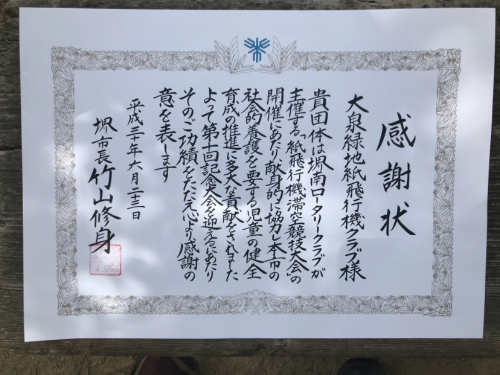 感謝状
大泉緑地紙飛行機クラブ様
貴団体は堺南ロータリークラブが
主催する「紙飛行機滞空競技大会」の
開催にあたり献身的に協力し本市の
社会的養護を要する児童の健全
育成の推進に多大な貢献をされました
よって第十回記念大会を迎えるにあたり
そのご功績をたたえ心より感謝の
意を表します
平成三十年六月二十三日
堺市長 竹山修身